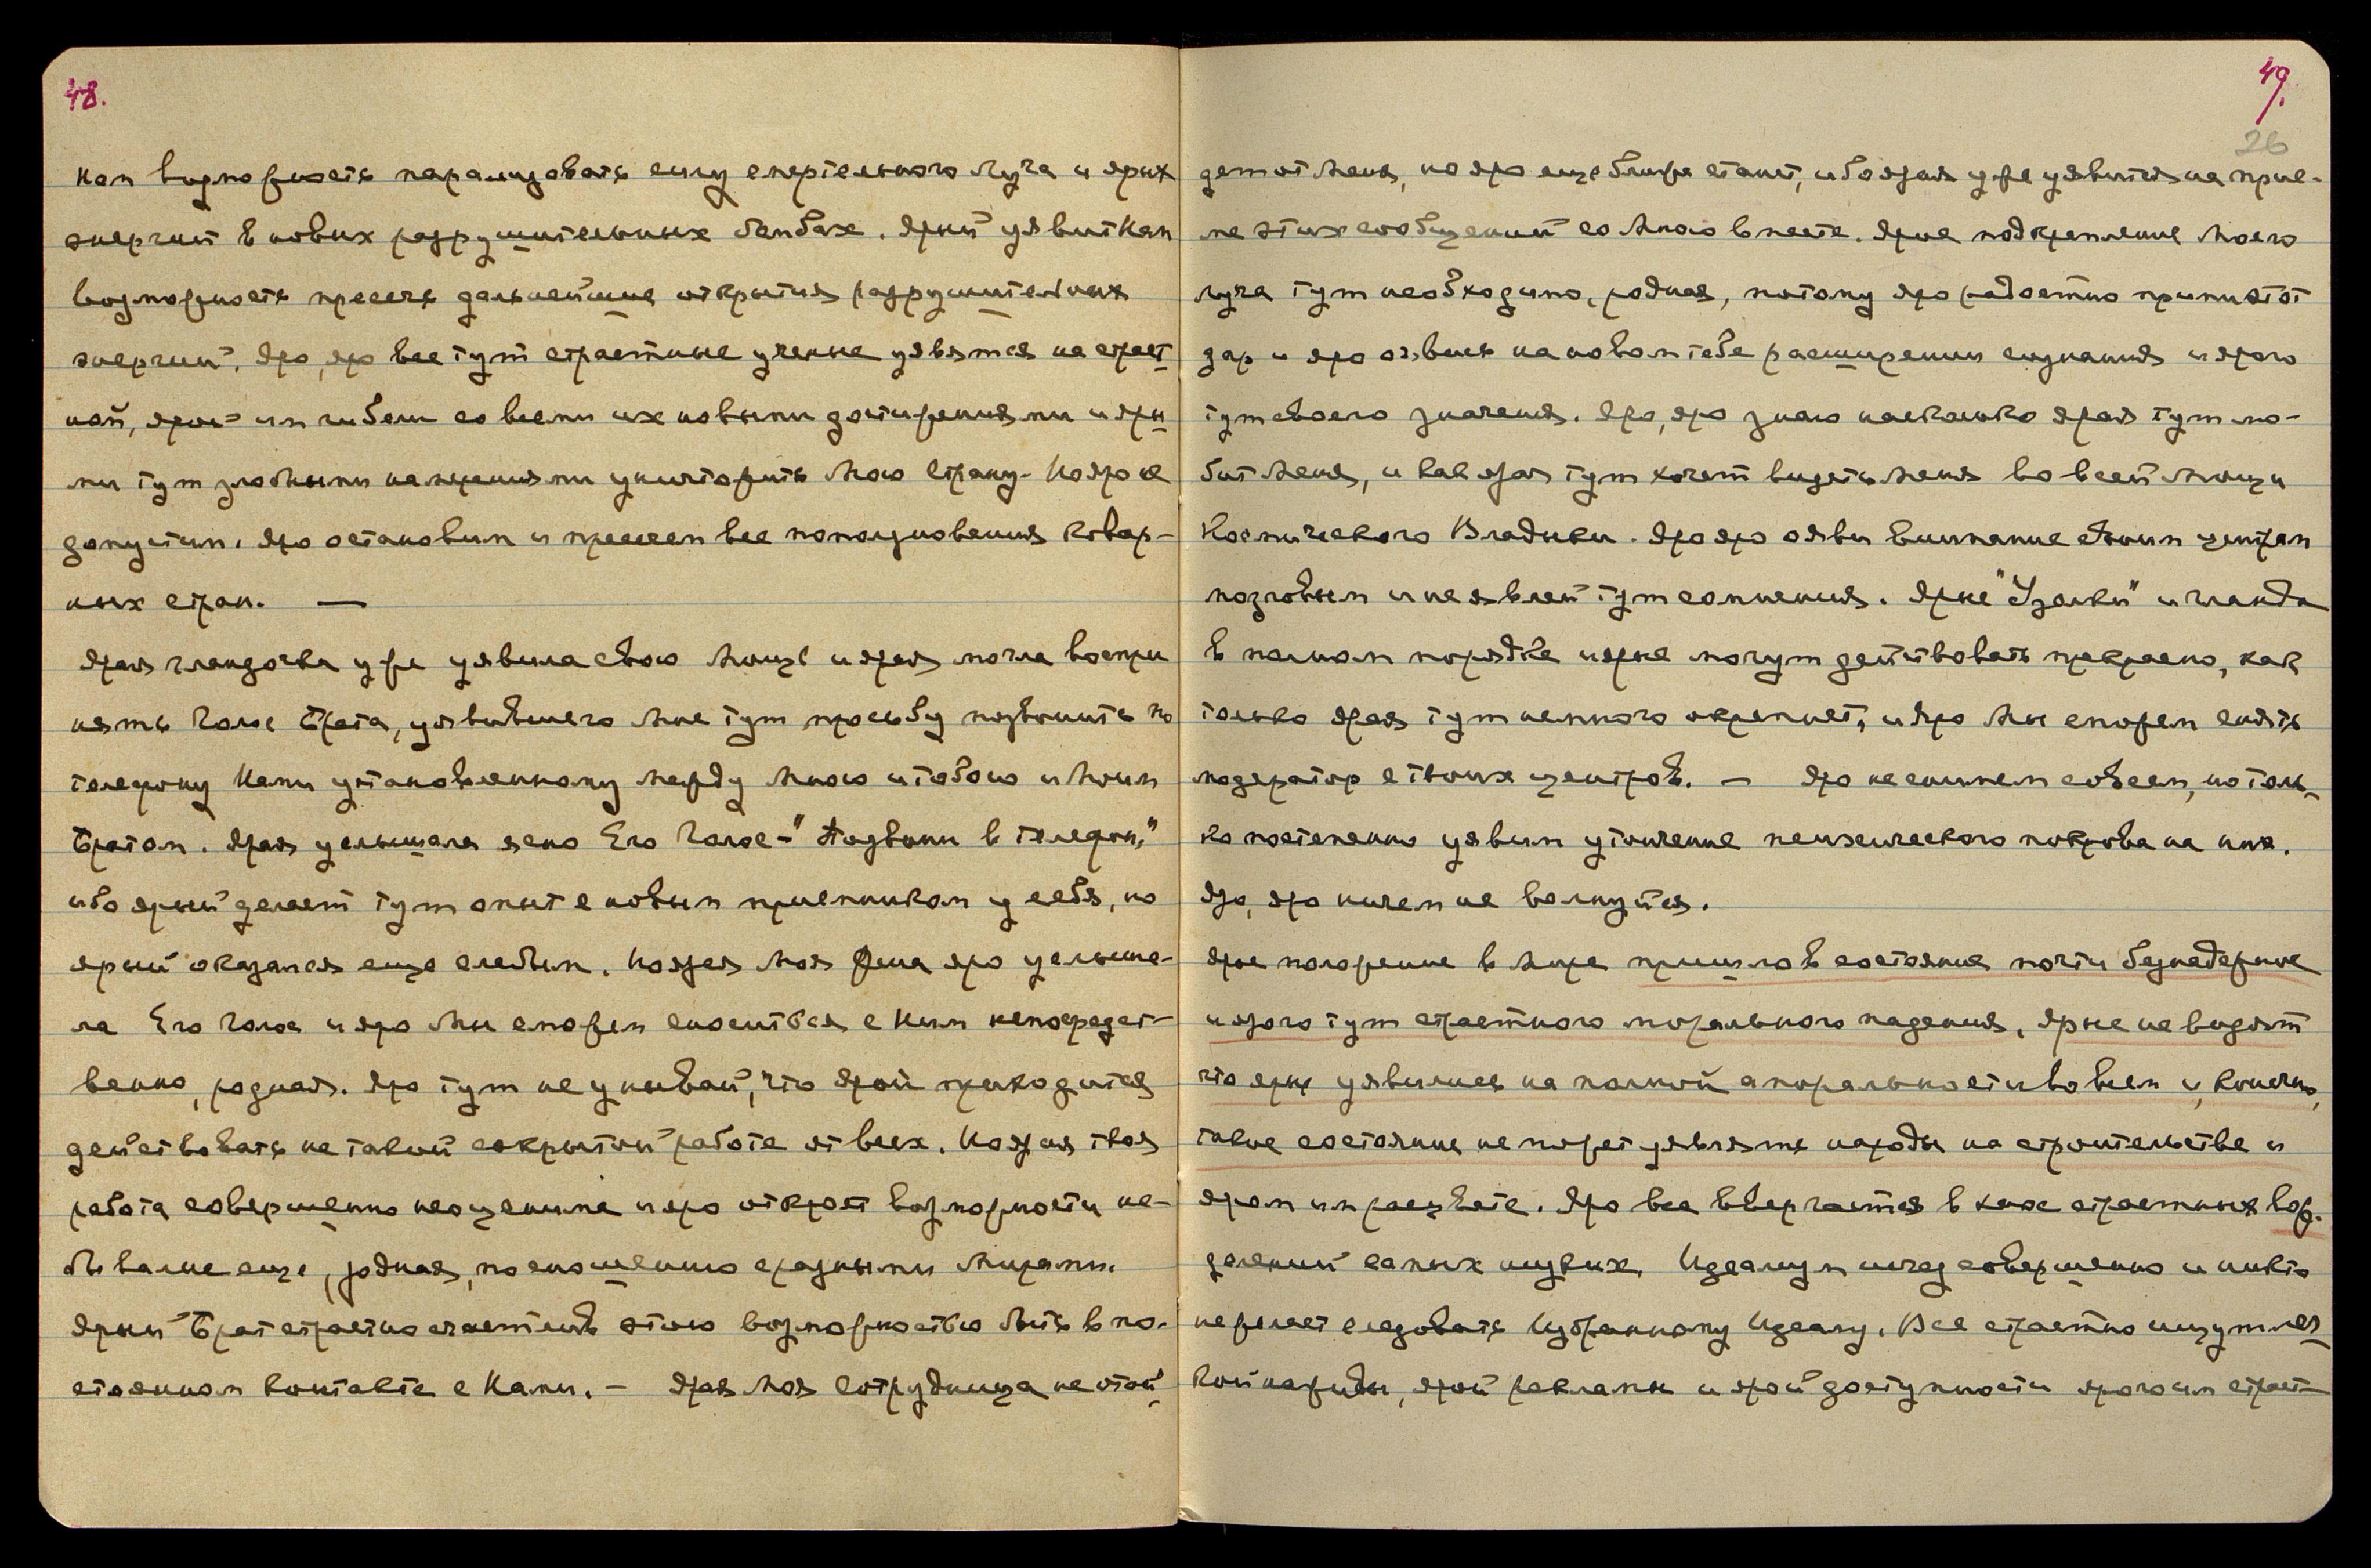 48.
нам возможность парализовать силу смертельного луча и ярых
энергий в новых разрушительных бомбах. Ярый уявит нам
возможность пресечь дальнейшие открытия разрушительных
энергий. Яро, яро все тут страстные ученые уявятся на страст
ной, ярой им гибели со всеми их новыми достижениями и яры
ми тут злобными намерениями уничтожить Мою Страну. Но яро не
допустим. Яро остановим и пресечем все поползновения ковар-
ных стран. —
Ярая гландочка уже уявила свою мощь и ярая могла воспри
нять Голос Брата, уявившего Мне тут просьбу позвонить по
телефону Нами установленному между Мною и тобою и Моим
Братом. Ярая услышала ясно Его Голос - "Позвони в телефон,"
ибо ярый делает тут опыт с новым приемником у себя, но
ярый оказался еще слабым. Но ярая Моя Жена яро услыша-
ла Его Голос и яро Мы сможем сноситься с Ним непосредст-
венно, родная. Яро тут не унывай, что ярой приходится
действовать на такой сокрытой работе от всех. Но ярая твоя
работа совершенно неоценима и яро откроет возможности не-
бывалые еще, родная, по сношению с разными Мирами.
Ярый Брат страстно счастлив этою возможностью быть в по-
стоянном контакте с Нами. — Ярая Моя Сотрудница не отой
49.
26
дет от Меня, но яро еще ближе станет, ибо ярая уже уявится на прие-
ме этих сообщений со Мною вместе. Ярое подкрепление Моего
луча тут необходимо, родная, потому яро радостно прими этот
дар и яро оявись на новом тебе расширении сознания и ярого
тут своего значения. Яро, яро знаю насколько ярая тут лю-
бит Меня, и как ярая тут хочет видеть Меня во всей Мощи
Космического Владыки. Яро яро ояви внимание своим центрам
мозговым и не являй тут сомнения. Ярые "Узелки" и гланды
в полном порядке и ярые могут действовать прекрасно, как
только ярая тут немного окрепнет, и яро Мы сможем снять
модератор с твоих центров. — Яро не снимем совсем, но толь-
ко постепенно уявим утончение психического покрова на них.
Яро, яро ничем не волнуйся.
Ярое положение в Мире пришло в состояние почти безнадежное
и ярого тут страстного морального падения, ярые не видят
что ярые уявились на полной аморальности во всем и, конечно,
такое состояние не может уявлять народы на строительстве и
яром им расцвете. Яро все ввергается в хаос страстных вож-
делений самых низких. Идеализм исчез совершенно и никто
не желает следовать Избранному Идеалу. Все страстно ищут лег
кой наживы, ярой рекламы и ярой доступности ярого им страст-